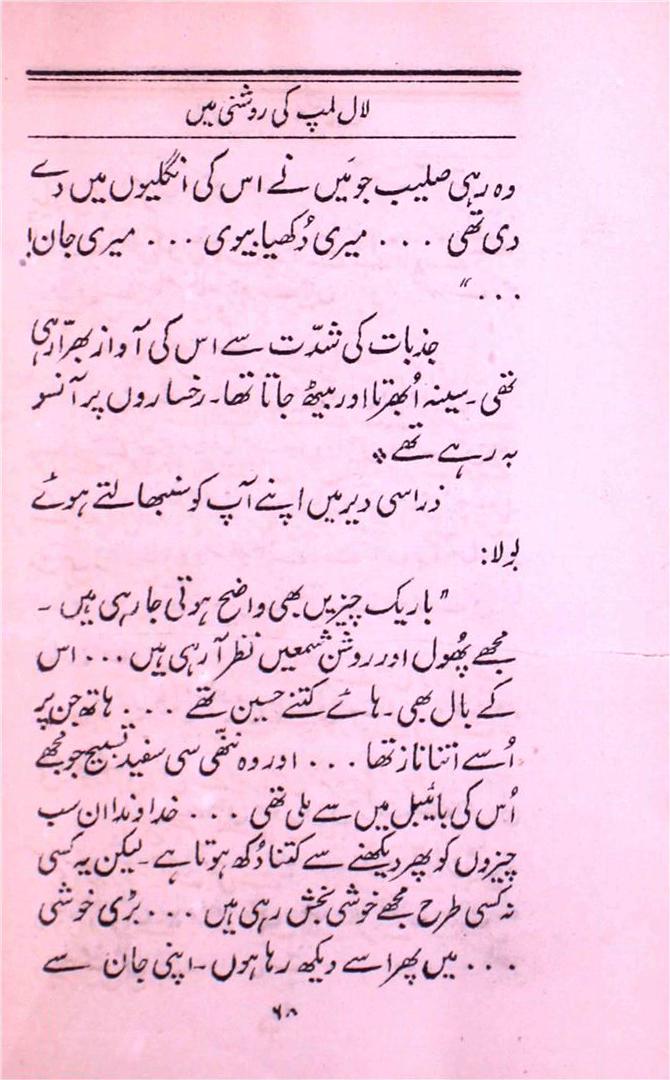 لال لمپ کی روشنی میں
وہ رہی صلیب جو مَیں نے اس کی انگلیوں میں دے
دی تھی ... میری دُکھیا بیوی ... میری جان!
..."
جذبات کی شدّت سے اس کی آواز بھرّا رہی
تھی۔ سینہ اُبھرتا اور بیٹھ جاتا تھا۔ رخساروں پر آنسو
بہ رہے تھے
ذراسی دیر میں اپنے آپ کو سنبھالتے ہوئے
بولا:
"باریک چیزیں بھی واضح ہوتی جا رہی ہیں۔
مجھے پھُول اور روشن شمعیں نظر آ رہی ہیں ... اس
کے بال بھی۔ ہائے کتنے حسین تھے ... ہاتھ جن پر
اُسے اتنا ناز تھا ... اور وہ ننھّی سی سفید تسبیح جو مجھے
اُس کی بائیبل میں سے ملی تھی ... خداوندا ان سب
چیزوں کو پھر دیکھنے سے کتنا دُکھ ہوتا ہے۔ لیکن یہ کسی
نہ کسی طرح مجھے خوشی بخش رہی ہیں ... بڑی خوشی
... میں پھر اسے دیکھ رہا ہوں۔ اپنی جان سے